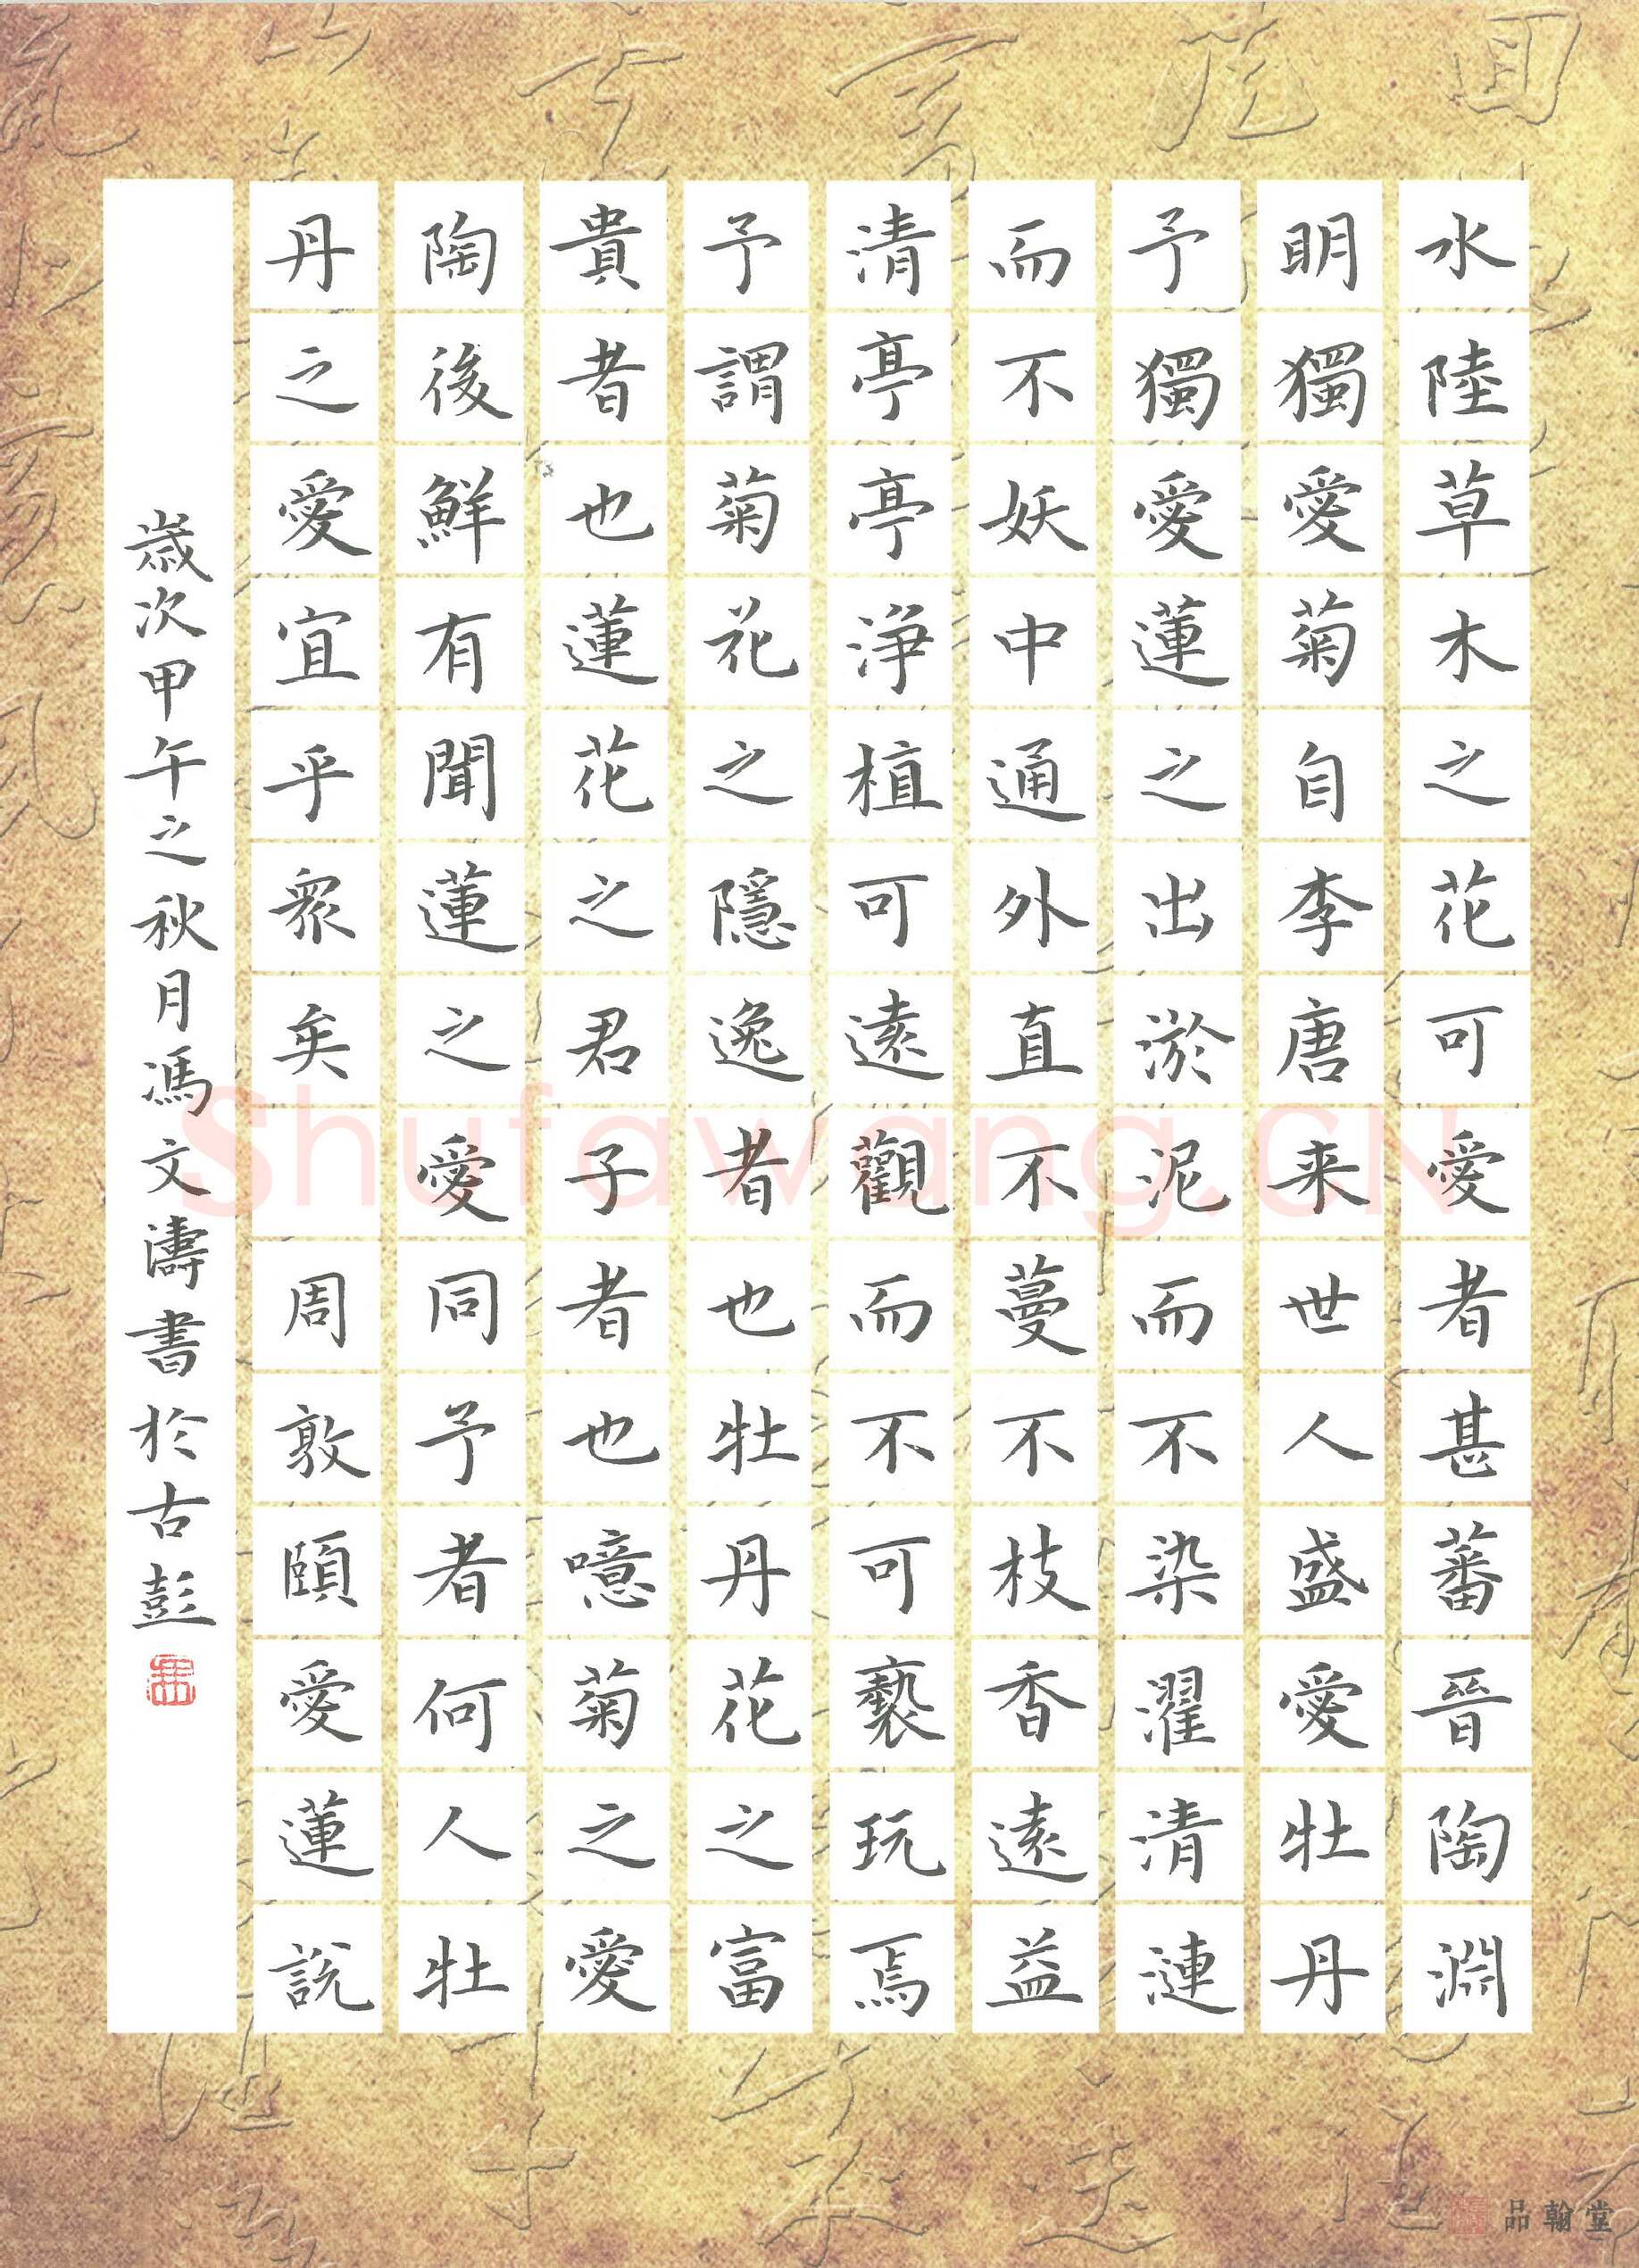 水陸草木之花可愛者甚蕃晉陶淵
明獨愛菊自李唐来世人盛愛牡丹
予獨愛蓮之出淤泥而不染濯清漣
而不妖中通外直不蔓不枝香遠益
清亭亭淨植可遠觀而不可褻玩焉
予謂菊花之隱逸者也牡丹花之富
貴者也蓮花之君子者也噫菊之愛
陶後鮮有聞蓮之愛同予者何人牡
丹之愛宜乎衆矣 周敦頤愛蓮說
歲次甲午之秋月馮文濤書於古彭
Shufawang.CN
品翰堂